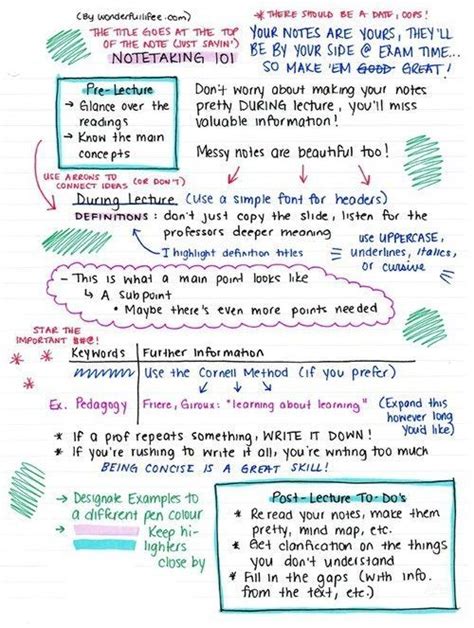 (By wonderfulifee.com)
* THERE SHOULD BE A DATE, OOPS!
THE TITLE GOES AT THE TOP
OF THE NOTE (JUST SAYIN')
NOTETAKING 101
YOUR NOTES ARE YOURS, THEY'LL
BE BY YOUR SIDE @ EXAM TIME...
SO MAKE 'EM GOOD GREAT!
Pre-Lecture
→ Glance over the
readings
→ Know the main
concepts
Don't worry about making your notes
pretty DURING lecture, you'll miss
valuable information!
Messy notes are beautiful too!
USE ARROWS TO
CONNECT IDEAS (OR DON'T)
During Lecture (Use a simple font for headers)
DEFINITIONS: don't just copy the slide, listen for the
professors deeper meaning
I highlight definition titles
use UPPERCASE,
underlines, italics,
or cursive
- This is what a main point looks like
↳ A subpoint
• Maybe there's even more points needed
STAR THE
IMPORTANT B#@!
Keywords | Further Information
Use the Cornell Method (if you prefer)
Ex. Pedagogy | Friere, Giroux: "learning about learning"
(Expand this
however long
you'd like)
* If a prof repeats something, WRITE IT DOWN!
* If you're rushing to write it all, you're writing too much
BEING CONCISE IS A GREAT SKILL!
→ Designate Examples to
a different pen colour
→ Keep hi-
lighters
close by
Post-Lecture To-Do's
* Reread your notes, make them
pretty, mind map, etc.
* Get clarification on the things
you don't understand
* Fill in the gaps (with info.
from the text, etc.)